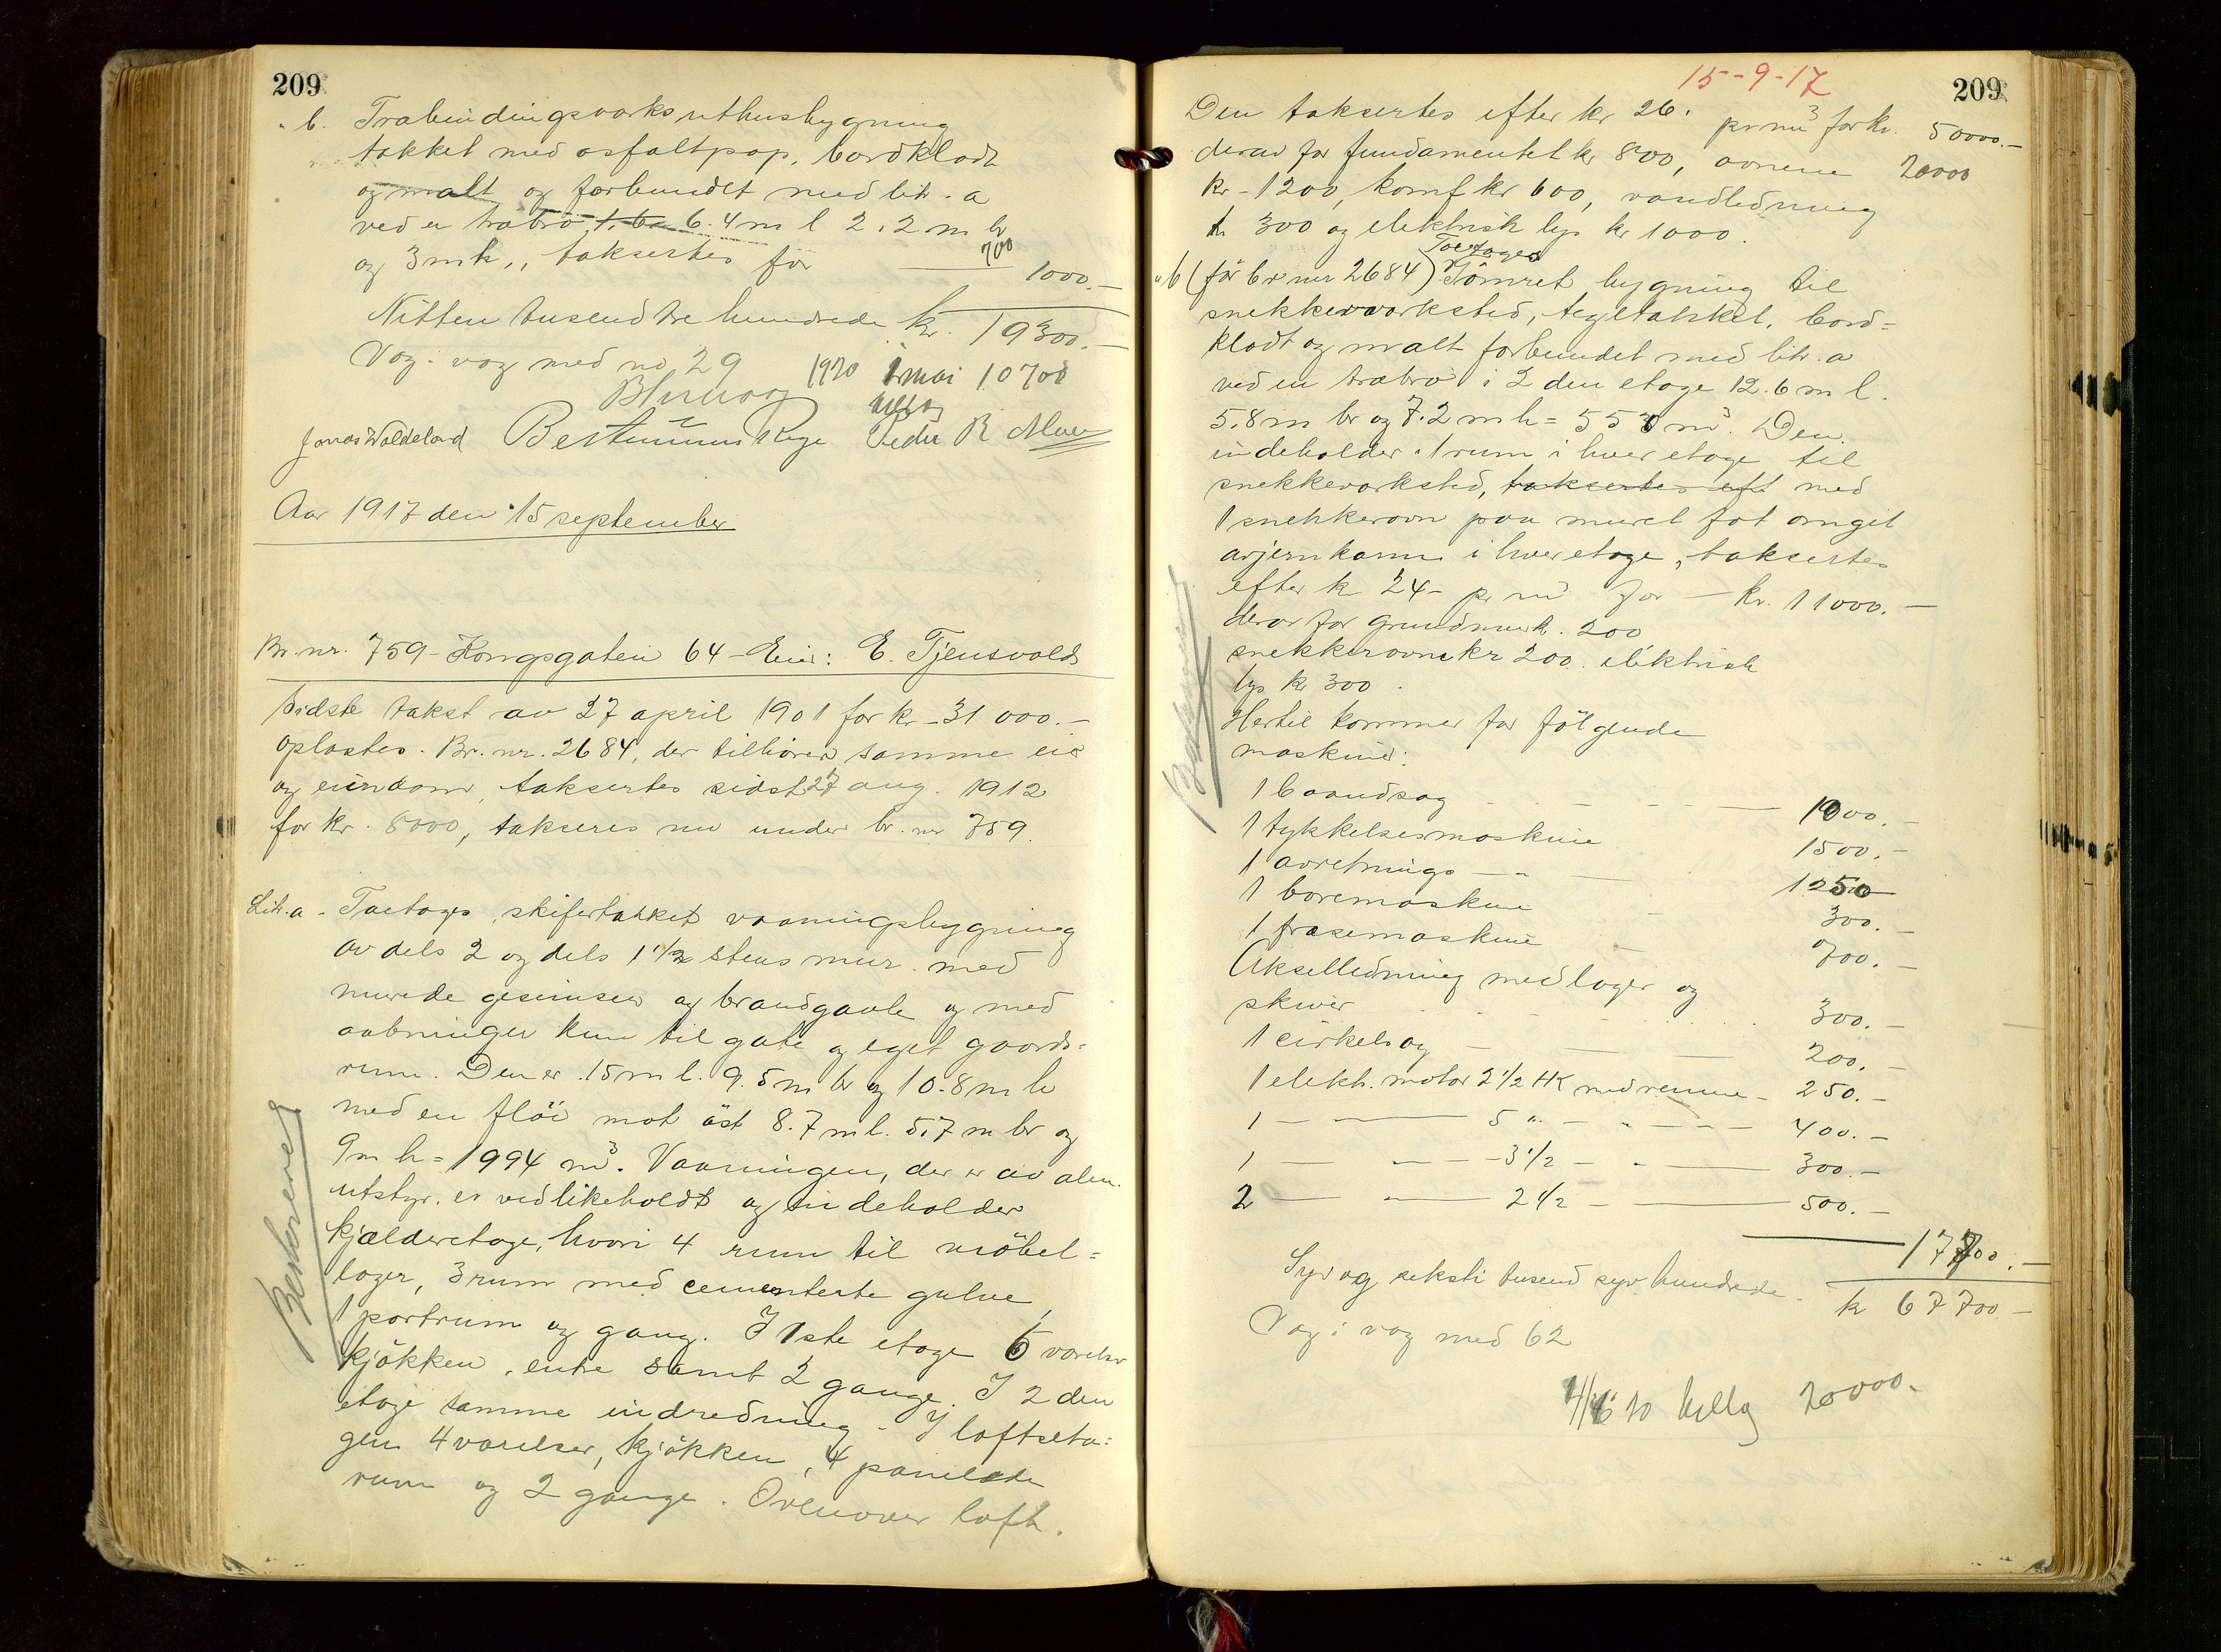 209
" b. Træbindingsværks uthusbygning
tækket med asfaltpap, bordklædt
og malt og forbundet med litr. a
ved en træbro, 6.4 m l 2.2 m br
og 3 m h., taksertes for 700 1000.—
Nitten tusend tre hundrede kr. 19300.—
Væg i væg med no 29
1920 1 mai 10700
tillæg
Jonas Waldeland Peder R
Aar 1917 den 15 september
Br. nr. 759 - Kongsgaten 64 - Eier: E. Tjensvold
Sidste takst av 27 april 1901 for kr - 31 000.—
oplæstes. Br. nr. 2684, der tilhører samme eier
og eiendom, taksertes sidst 27 aug. 1912
for kr. 8000, takseres nu under br. nr 759.
Lit. a - Toetages, skifertækket vaaningsbygning
av dels 2 og dels 1 1/2 stens mur. med
murede gesimser og brandgavle og med
aabninger kun til gate og eget gaards-
rum. Den er 15 m l. 9.5 m br og 10.8 m h
med en fløi mot øst 8.7 m l. 5.7 m br og
9 m h = 1994 m³. Vaaningen, der er av alm.
utstyr, er vedlikeholdt og indeholder
kjælderetage, hvori 4 rum til møbel-
lager, 3 rum med cementerte gulve,
1 portrum og gang. I 1ste etage 6 værelser
kjøkken, entre samt 2 gange. I 2 den
etage samme indredning. I loftseta-
gen 4 værelser, kjøkken, 4 panelede
rum og 2 gange. Ovenover loft.
15-9-17
209
Den taksertes efter kr 26. pr m³ for kr. 50000.—
derav for fundamentet kr 800, ovnene 20000
kr - 1200, komf kr 600, vandledning
kr 300 og elektrisk lys kr 1000.
" b (før br nr 2684) Toetages Tømret bygning til
snekkerværksted, tegltækket, bord-
klædt og malt forbundet med litr. a
ved en træbro i 2 den etage 12.6 m l.
5.8 m br og 7.2 m h = m³. Den
indeholder 1 rum i hver etage til
snekkerværksted, taksertes eft med
1 snekkerovn paa muret fot omgit
av jernkarm i hver etage, taksertes
efter kr 24 - pr m³ for — kr. 11000.—
derav for grundmur k. 200
snekkerovne kr 200. elektrisk
lys kr 300.
Hertil kommer for følgende
maskiner:
1 baandsag — 1000.—
1 tykkelsesmaskine 1500.—
1 avretnings — " — 1250
1 boremaskine — 300.—
1 fræsemaskine — 700.—
Akselledning med lager og
skiver 300.—
1 cirkelsag — 200.—
1 elektr. motor 2 1/2 HK med remme — 250.—
1 — — 5 " — " — 400.—
1 — " — 3 1/2 — " — 300.—
2 — " — 2 1/2 — — 500.—
17700.—
Syv og seksti tusend syv hundrede — kr 67700 —
Væg i væg med 62
20 tillæg 20000.-